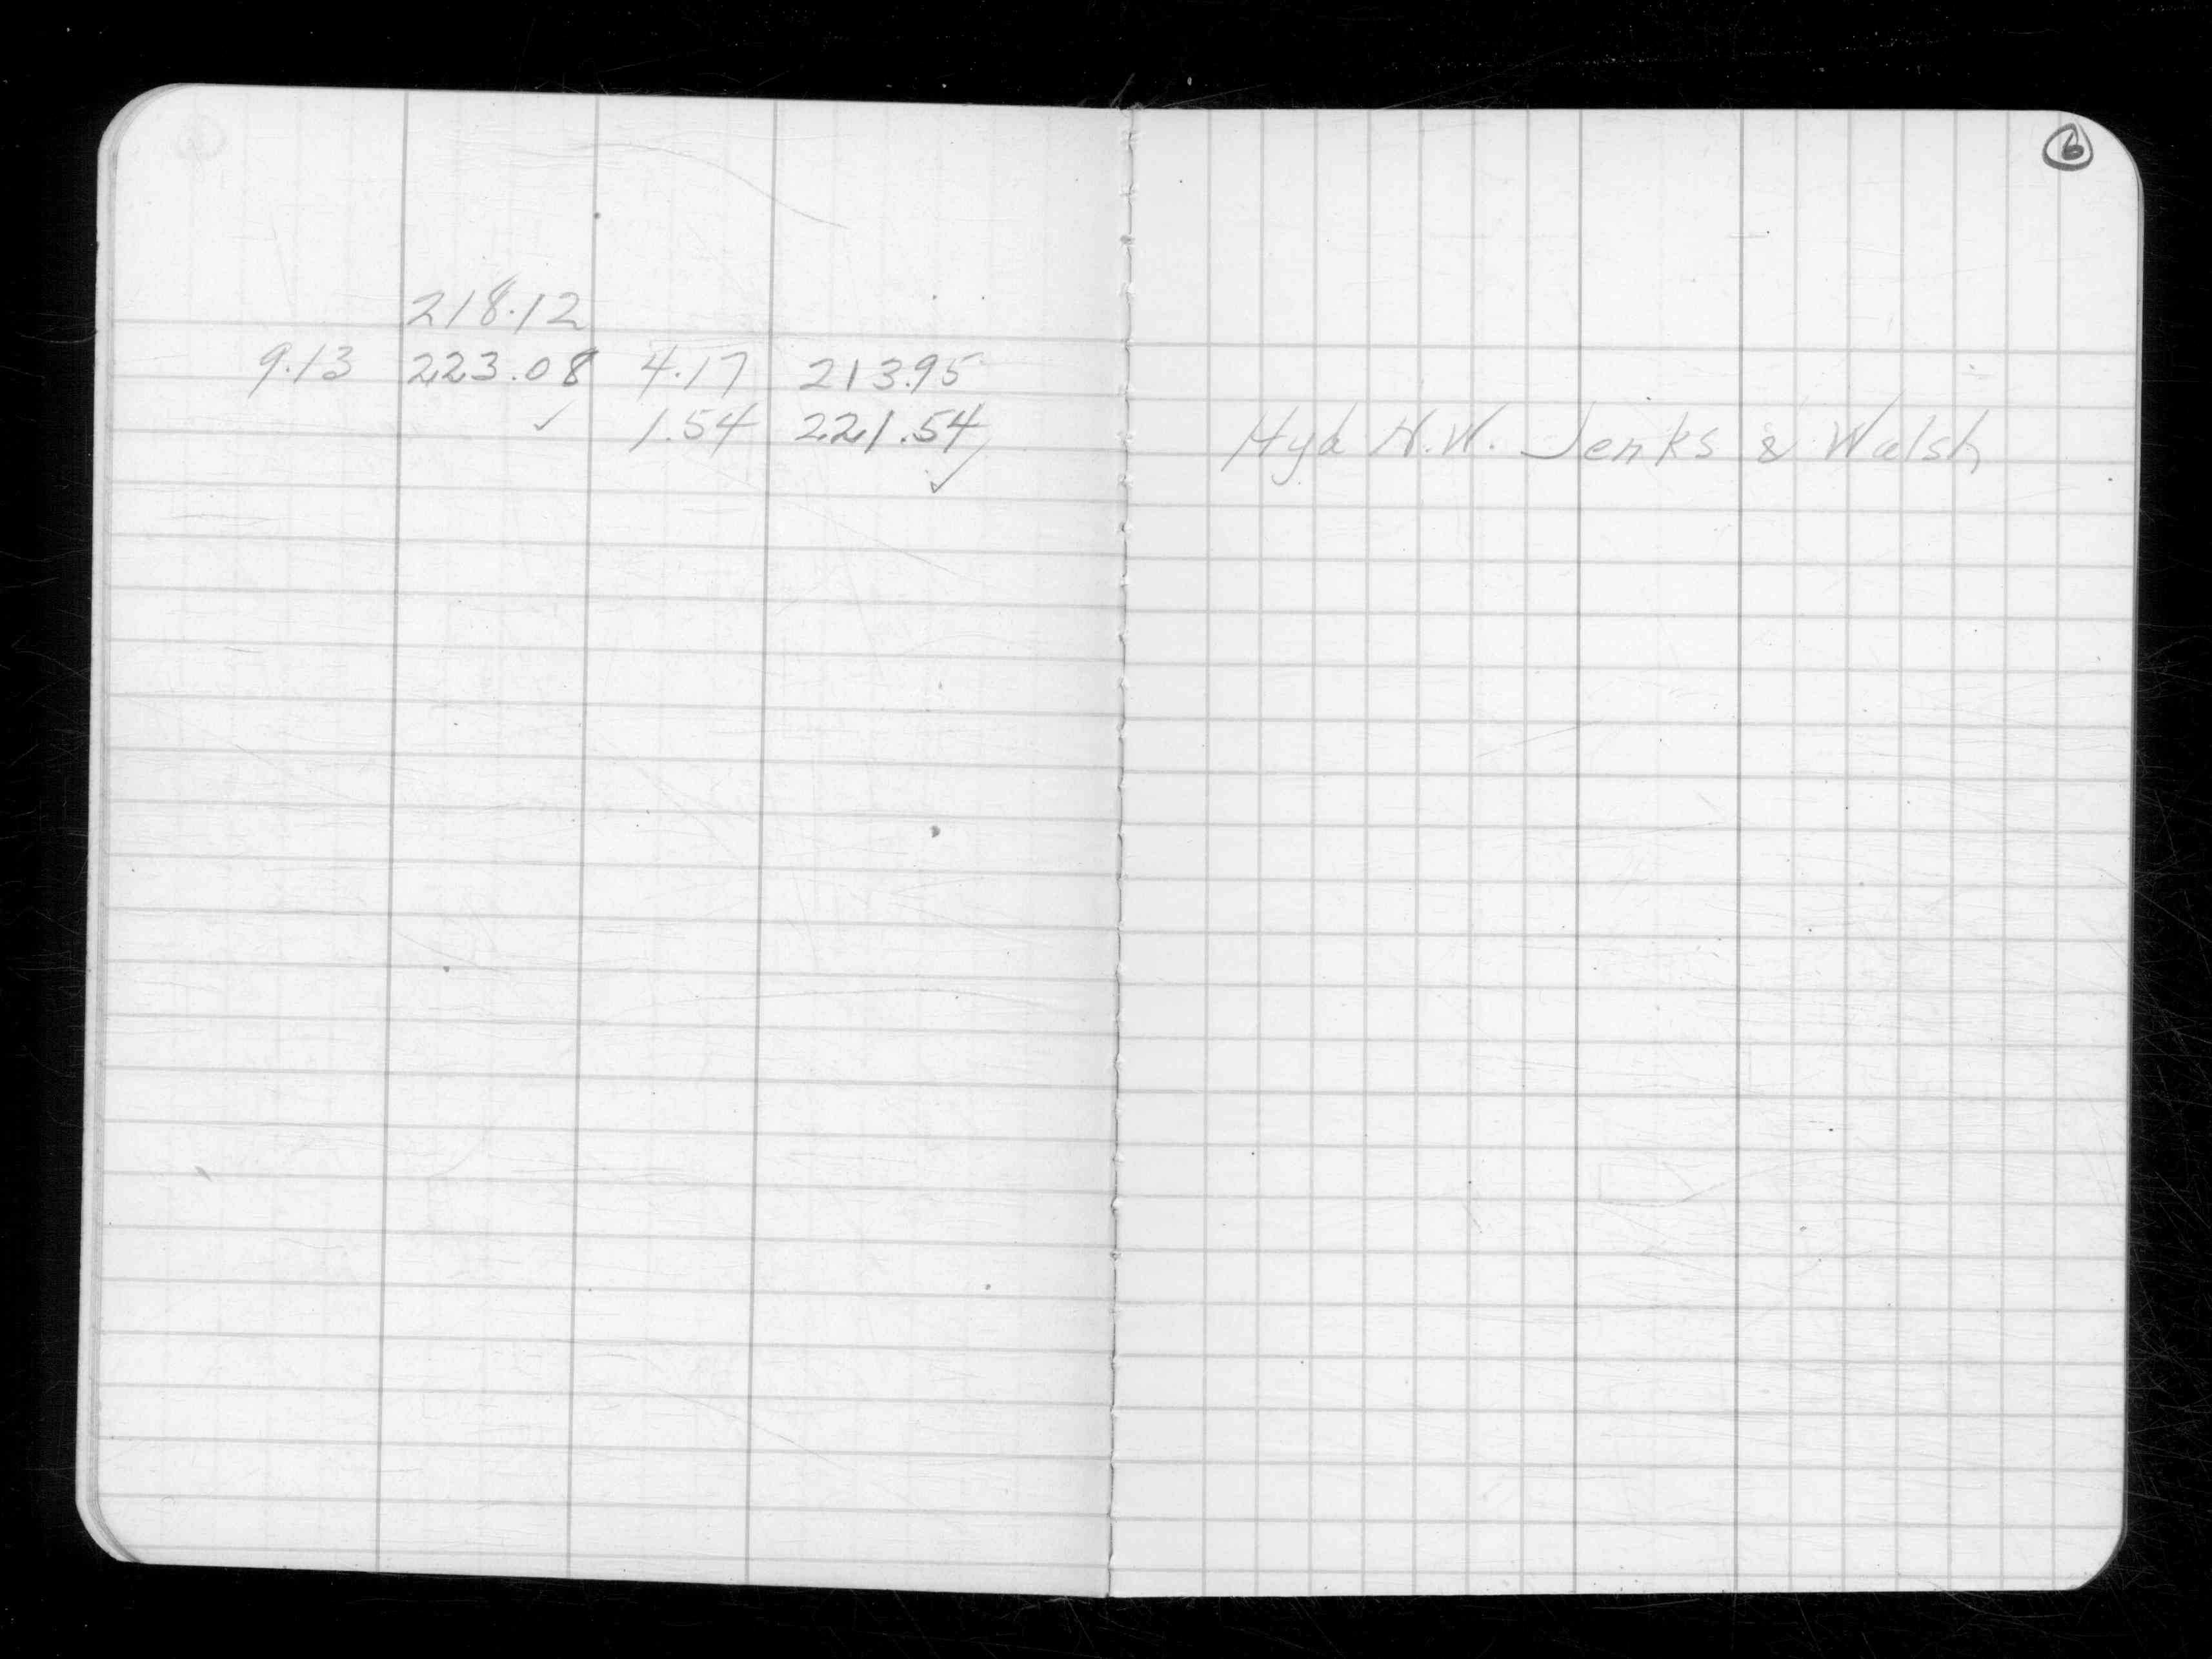 6
218.12
9.13 223.08 4.17 213.95
✓ 1.54 221.54
✓
Hyd N.W. Jenks & Walsh